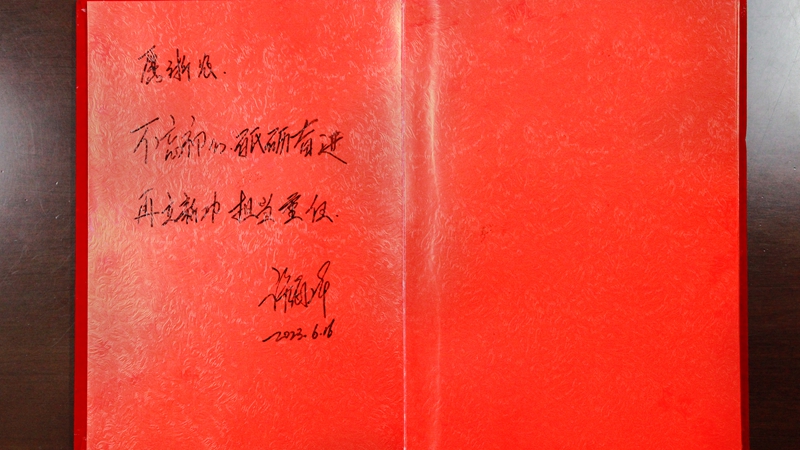 愿浙农
不忘初心 砥砺奋进
再立新功 担当重任
2023.6.16